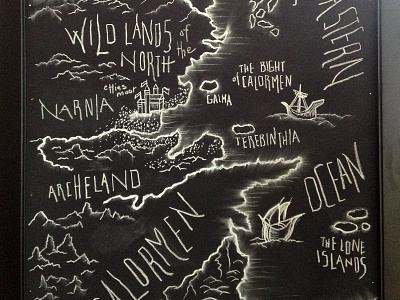 WILD LANDS
of the
NORTH
EASTERN
THE BIGHT
of CALORMEN
Ettins
moor
NARNIA
GALMA
TEREBINTHIA
ARCHELAND
OCEAN
CALORMEN
THE LONE
ISLANDS